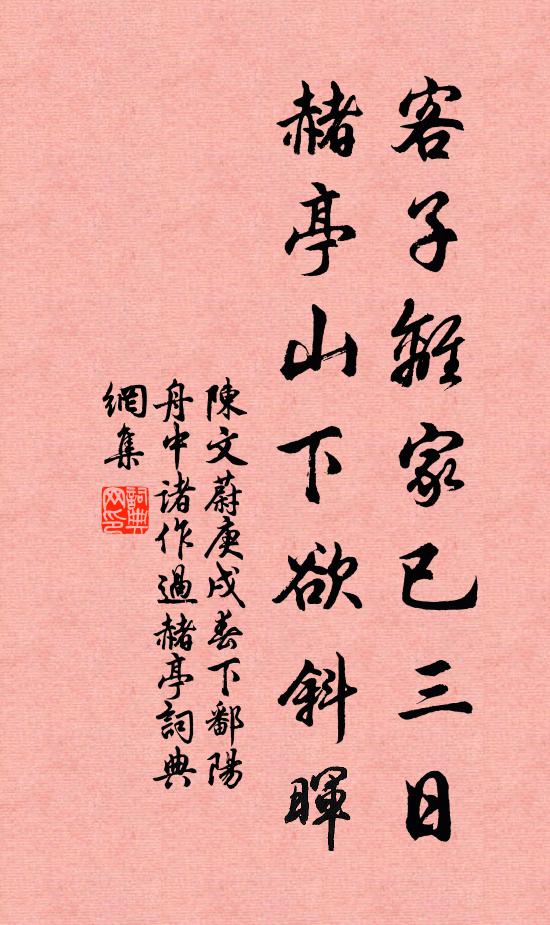 客子離家已三日
赭亭山下欲斜暉
陳文蔚庚戌春下鄱陽
舟中諸作過赭亭詞典
網集
詞典
网印